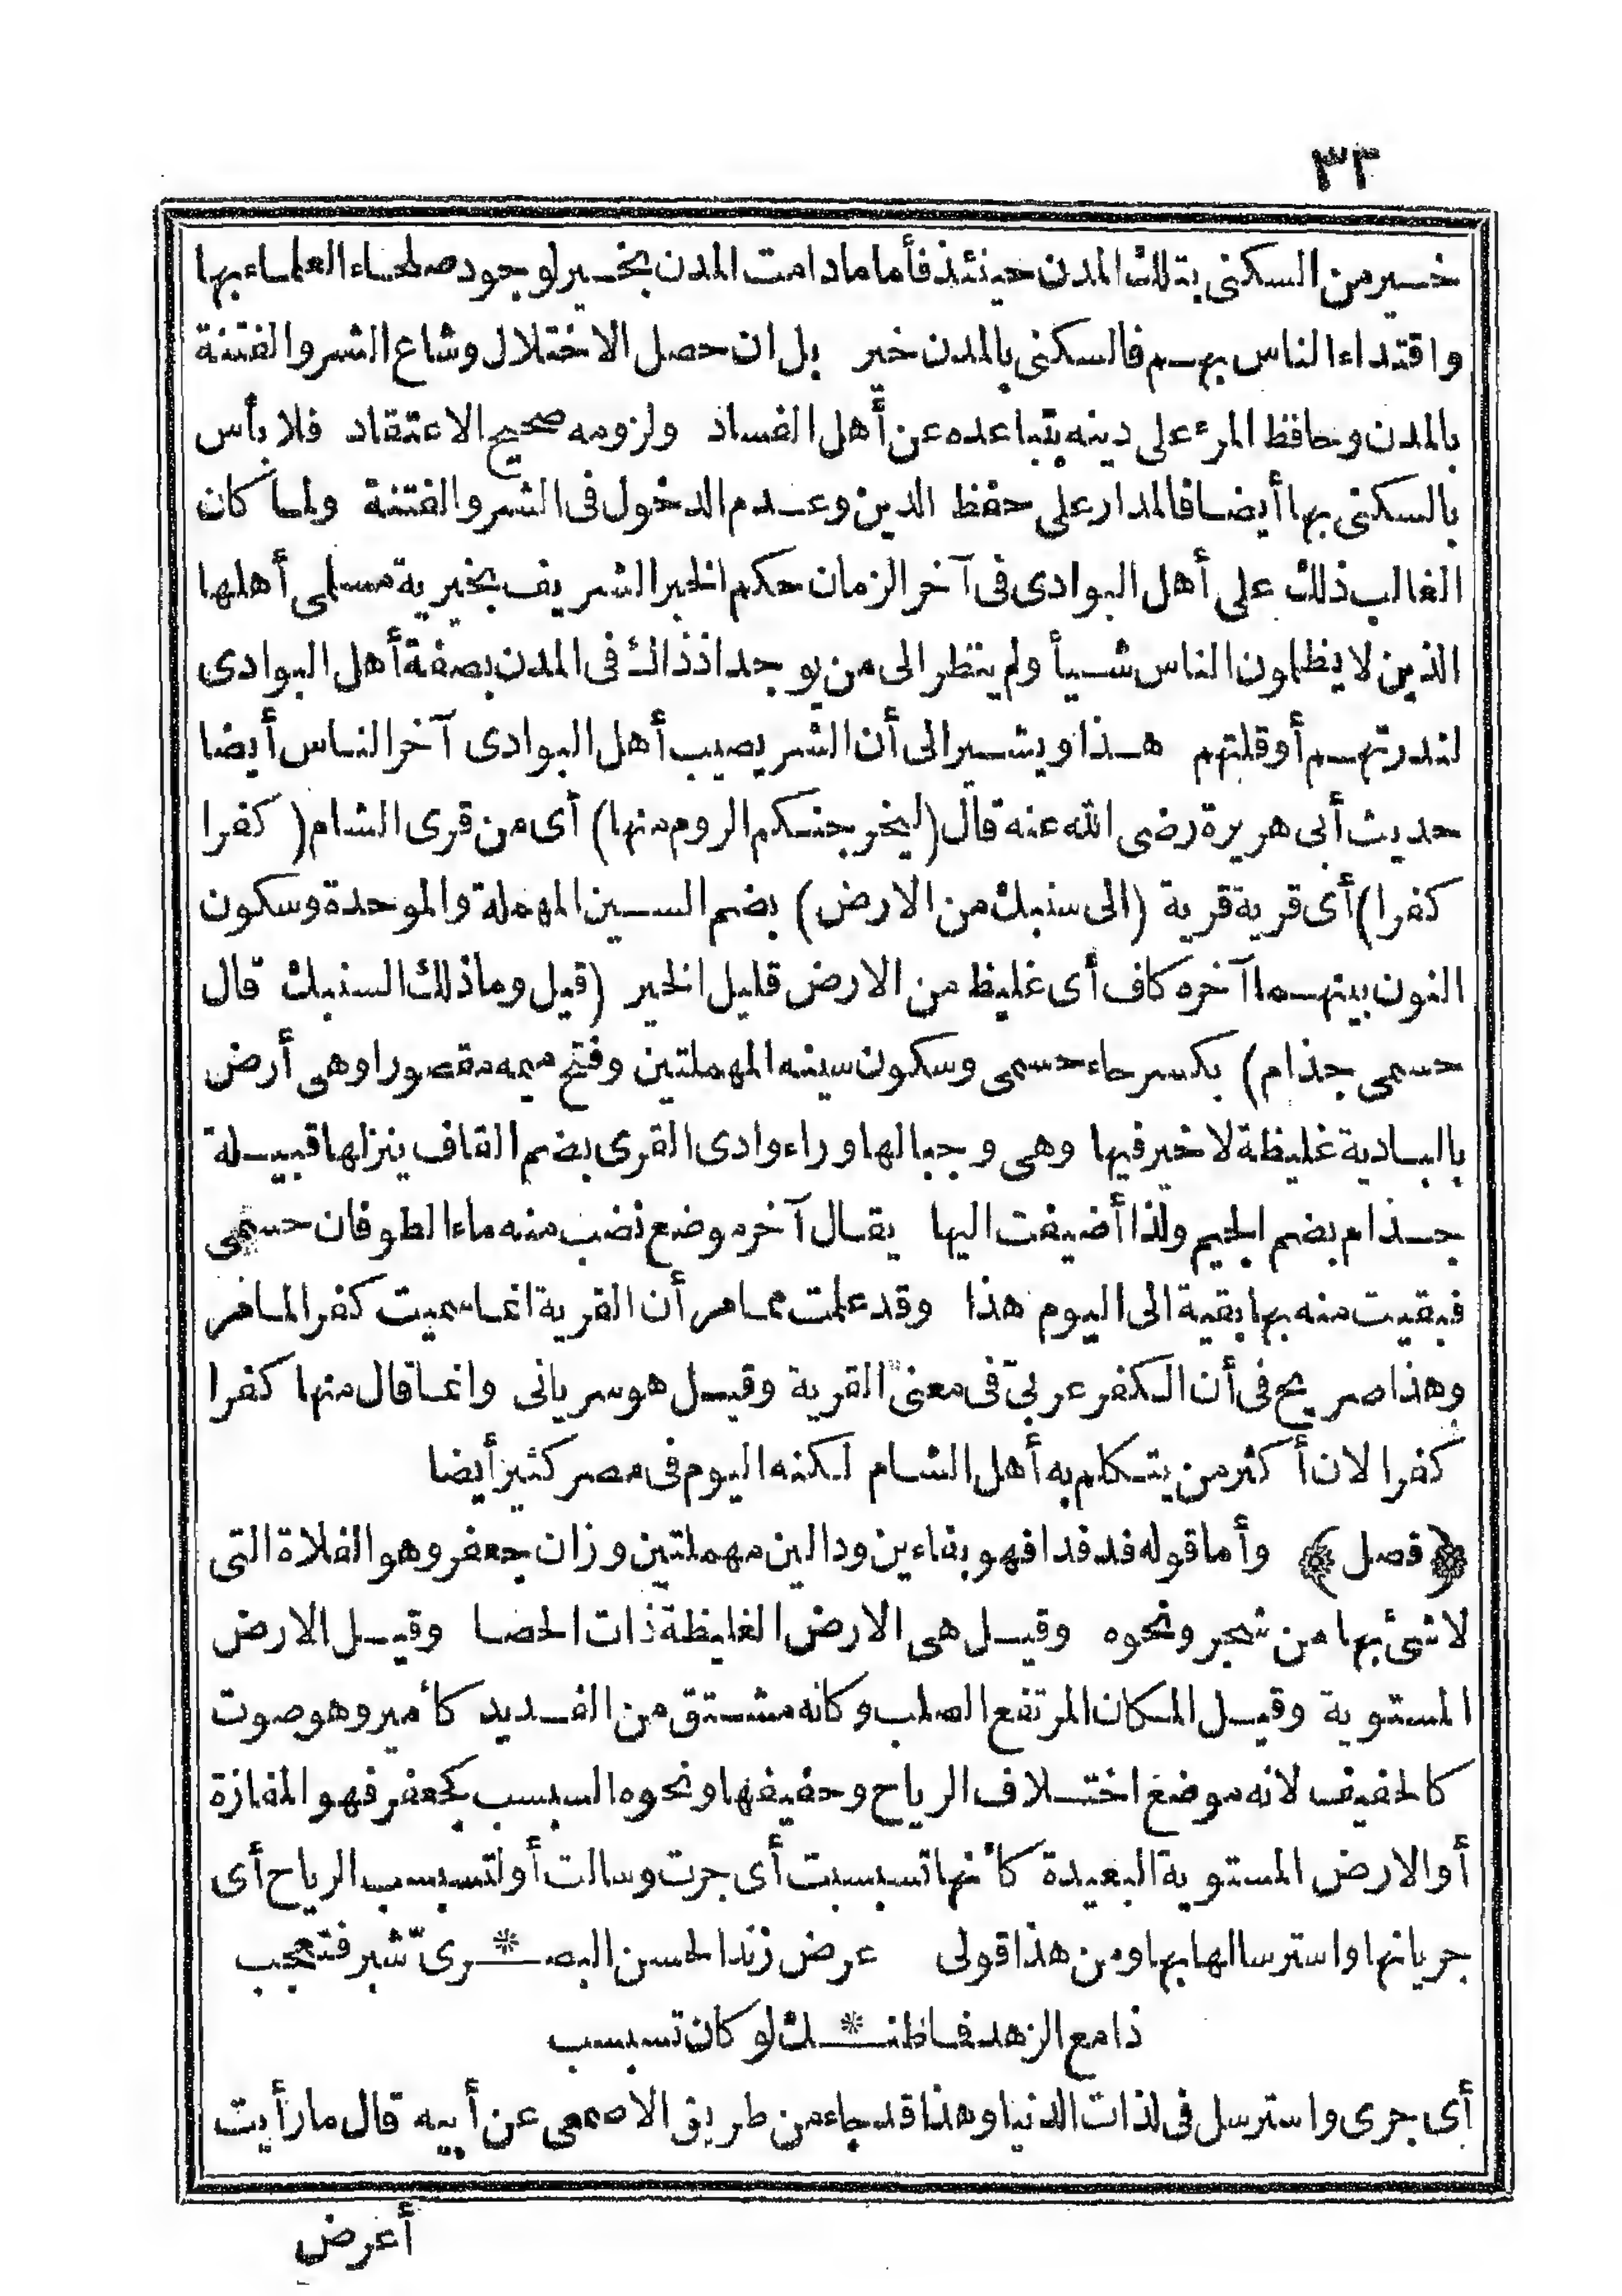 ٣٢
خير من السكنى بتلك المدن حينئذ فأما مادامت المدن بخير لوجود صلحاء العلماء بها
واقتداء الناس بهم فالسكنى بالمدن خير بل ان حصل الاختلال وشاع الشر والفتنة
بالمدن وحافظ المرء على دينه بتباعده عن أهل الفساد ولزومه صحيح الاعتقاد فلا بأس
بالسكنى بها أيضا فالمدار على حفظ الدين وعدم الدخول فى الشر والفتنة ولما كان
الغالب ذلك على أهل البوادى فى آخر الزمان حكم الخبر الشريف بخيرية مسلمى أهلها
الذين لا يظلمون الناس شيأ ولم ينظر الى من يوجد اذ ذاك فى المدن بصفة أهل البوادى
لندرتهم أو قلتهم هذا ويشير الى أن الشر يصيب أهل البوادى آخر الناس أيضا
حديث أبى هريرة رضى الله عنه قال (ليخرجنكم الروم منها) أى من قرى الشام (كفرا
كفرا) أى قرية قرية (الى سنبك من الارض) بضم السين المهملة والموحدة وسكون
النون بينهما آخره كاف أى غليظ من الارض قليل الخير (قيل وما ذلك السنبك قال
حسمى جذام) بكسر حاء حسمى وسكون سينه المهملتين وفتح ميمه مقصورا وهى أرض
بالبادية غليظة لا خير فيها وهى وجبالها وراء وادى القرى بضم القاف ينزلها قبيلة
جذام بضم الجيم ولذا أضيفت اليها يقال آخر موضع نضب منه ماء الطوفان حسمى
فبقيت منه بها بقية الى اليوم هذا وقد علمت مما مر أن القرية انما سميت كفرا لما مر
وهذا صريح فى أن الكفر عربىّ فى معنى القرية وقيل هو سريانى وانما قال منها كفرا
كفرا لان أكثر من يتكلم به أهل الشام لكنه اليوم فى مصر كثير أيضا
﴿فصل﴾ وأما قوله فدفدا فهو بفاءين ودالين مهملتين وزان جعفر وهو الفلاة التى
لا شئ بها من شجر ونحوه وقيل هى الارض الغليظة ذات الحصا وقيل الارض
المستوية وقيل المكان المرتفع الصلب وكانه مشتق من الفديد كأمير وهو صوت
كالحفيف لانه موضع اختلاف الرياح وحفيفها ونحوه السبسب كجعفر فهو المفازة
أو الارض المستوية البعيدة كأنها تسبسبت أى جرت وسالت أو لتسبسب الرياح أى
جريانها واسترسالها بها ومن هذا قولى عرض زند الحسن البصـ * ـرىّ شبر فتعجب
ذا مع الزهد فما ظنـ * ـك لو كان تسبسب
أى جرى واسترسل فى لذات الدنيا وهذا قد جاء من طريق الاصمعى عن أبيه قال ما رأيت
أعرض